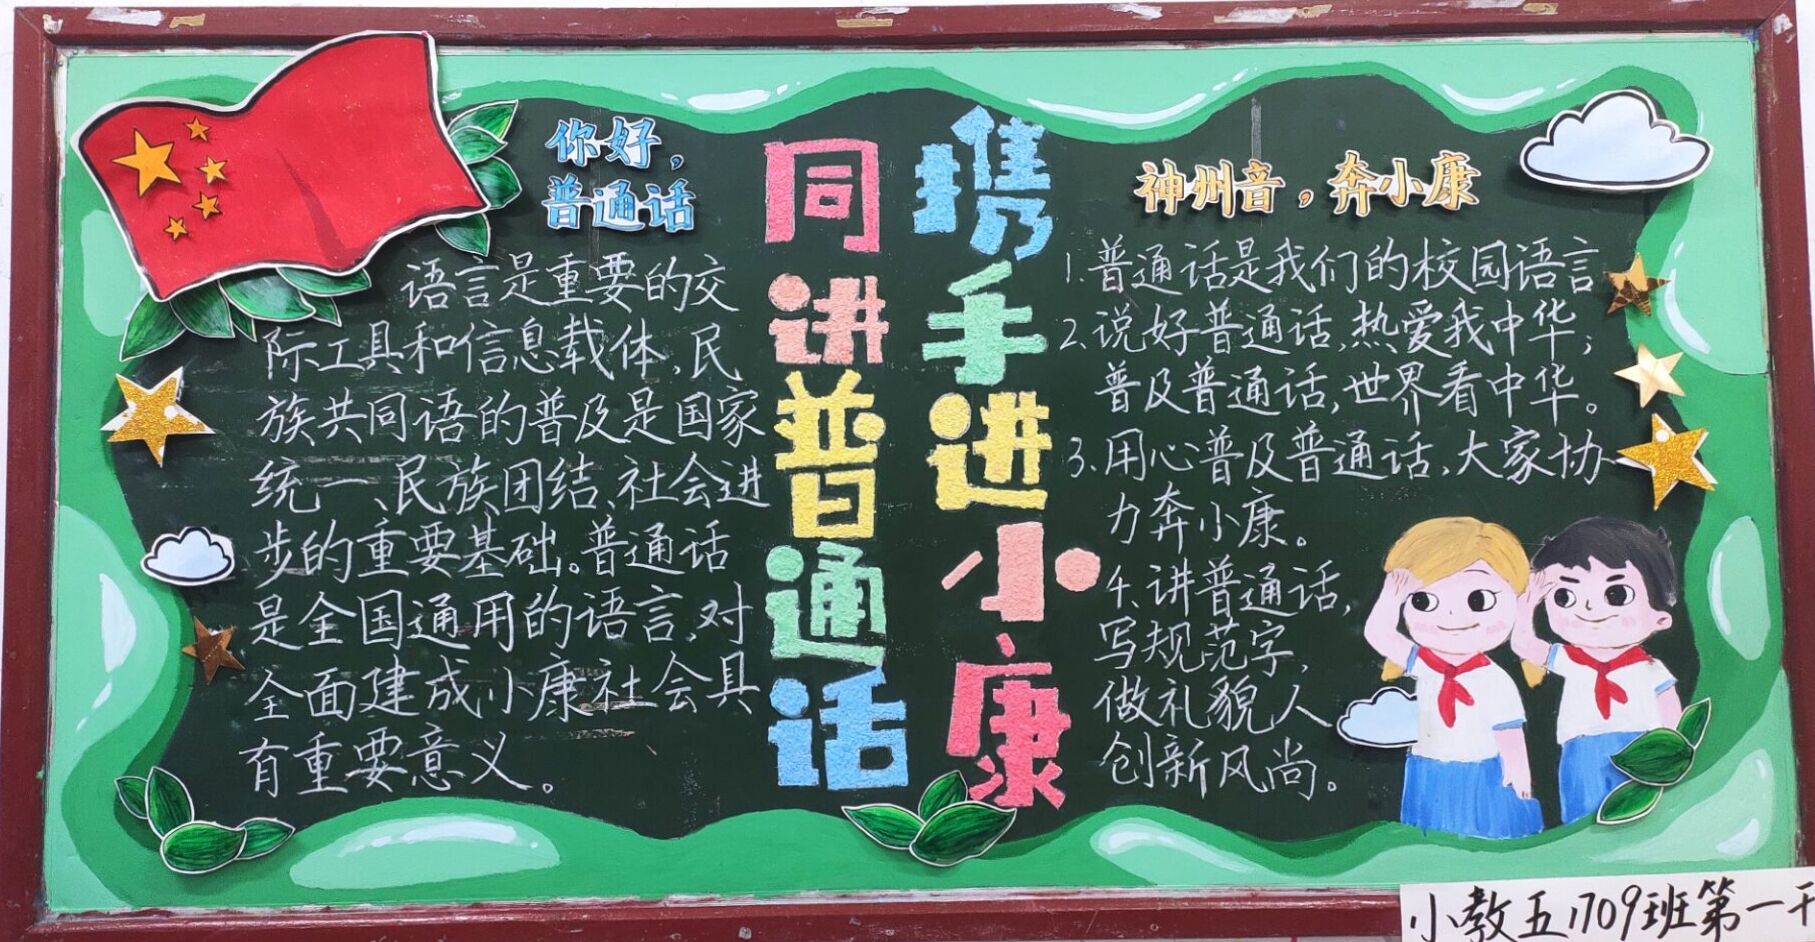 你好，
普通话
语言是重要的交
际工具和信息载体，民
族共同语的普及是国家
统一、民族团结、社会进
步的重要基础。普通话
是全国通用的语言，对
全面建成小康社会具
有重要意义。
同讲普通话
携手进小康
神州音，奔小康
1.普通话是我们的校园语言
2.说好普通话，热爱我中华；
普及普通话，世界看中华。
3.用心普及普通话，大家协
力奔小康。
4.讲普通话，
写规范字，
做礼貌人
创新风尚。
小教五1709班第一